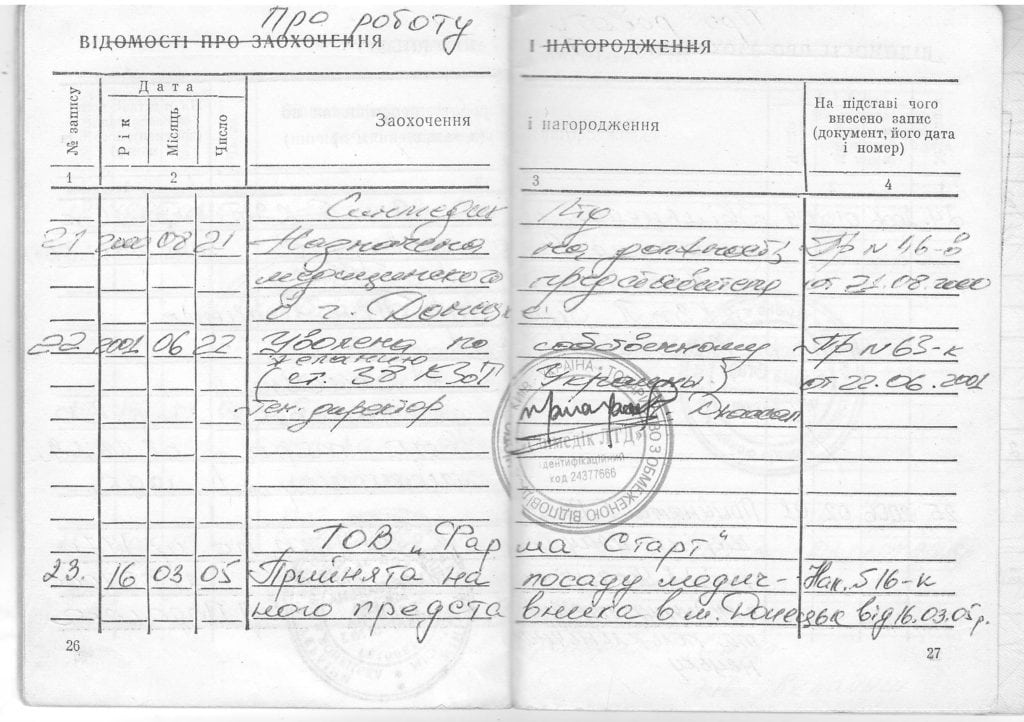 Про роботу
ВІДОМОСТІ ПРО ЗАОХОЧЕННЯ І НАГОРОДЖЕННЯ
№ запису
Дата
Рік
Місяць
Число
Заохочення і нагородження
На підставі чого
внесено запис
(документ, його дата
і номер)
1 2 3 4
Синмедик Лтд
21 2000 08 21 Назначена на должность Пр № 46-в
медицинского представителя от 21.08.2000
в г. Донецке
22 2001 06 22 Уволена по собственному Пр № 63-к
желанию
(ст. 38 КЗоТ Украины) от 22.06.2001
Ген. директор
УКРАЇНА • ТОВАРИСТВО З ОБМЕЖЕНОЮ ВІДПОВІД
ЛТД»
ідентифікаційний
код 24377666
ТОВ „Фарма Старт"
23. 16 03 05 Прийнята на посаду медич- Нак. 516-к
ного представника в м. Донецьк від 16.03.05р.
26
27